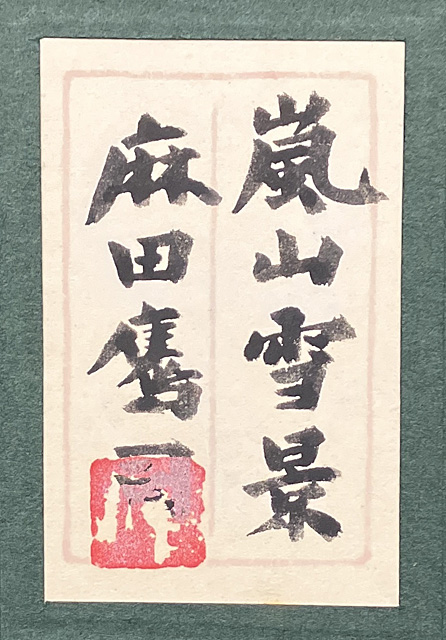 嵐山雪景
麻田鷹司